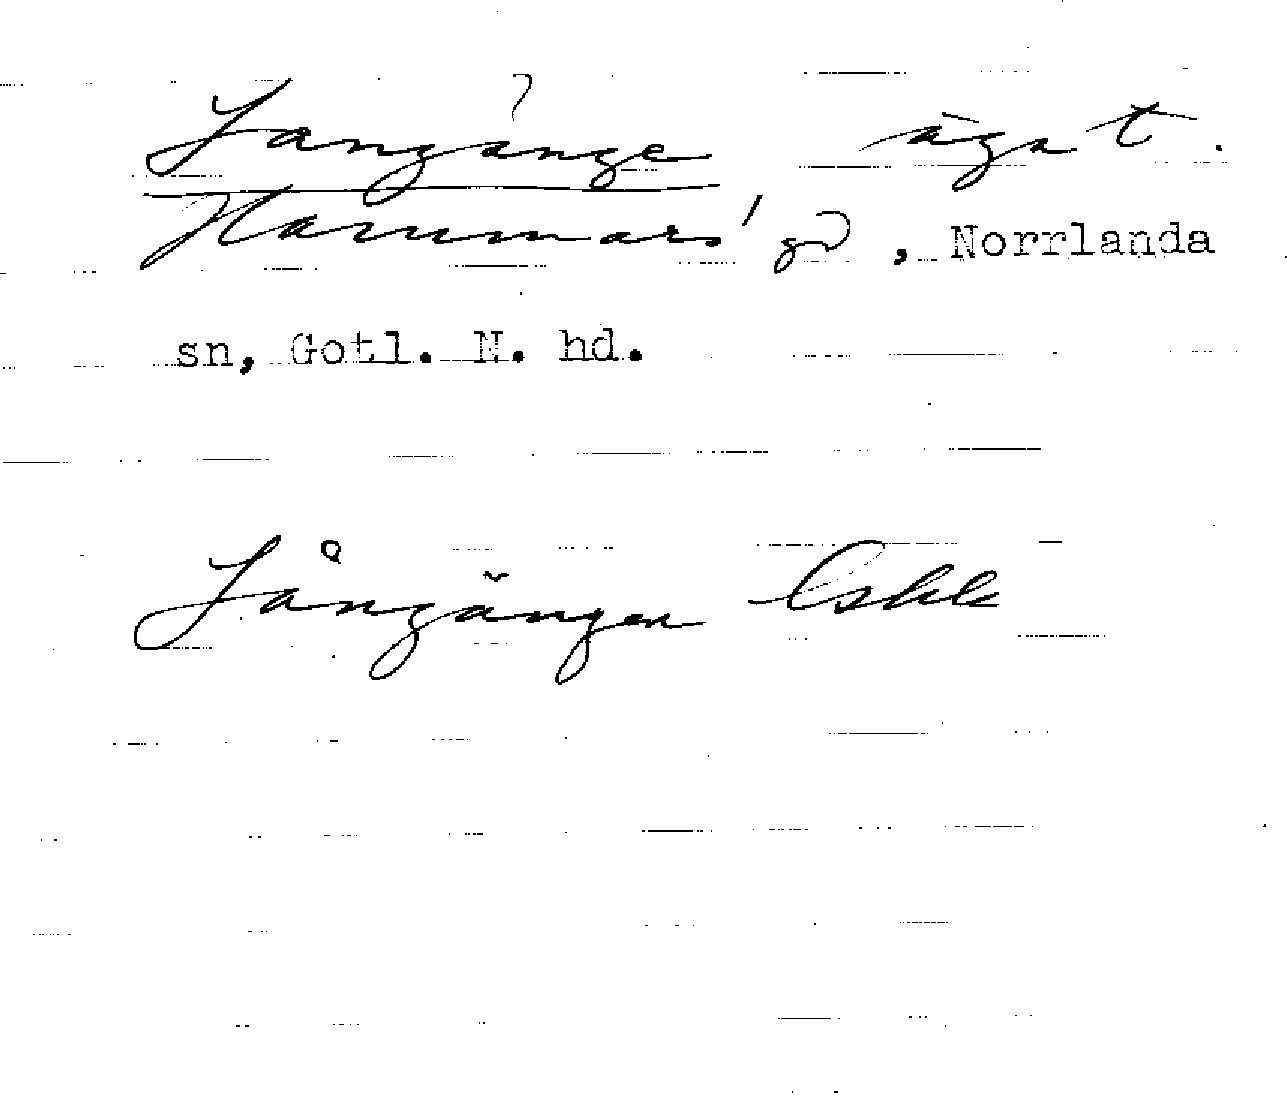 Langånge ägat.
Hammars' gd, Norrlanda
sn, Gotl. N. hd.
Långängen